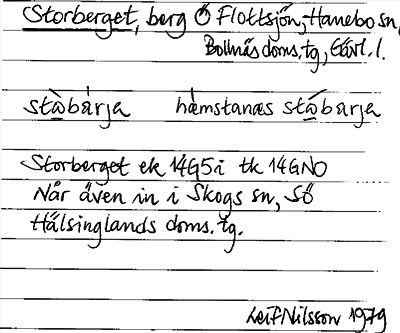 Storberget, berg Ö Flottsjön, Hanebo sn,
Bollnäs doms. tg, Gävl. l.
stòbárja hǜmstanæs stòbarja
Storberget ek 14G5i tk 14GNO
Når även in i Skogs sn, Sö
Hälsinglands doms. tg.
Leif Nilsson 1979